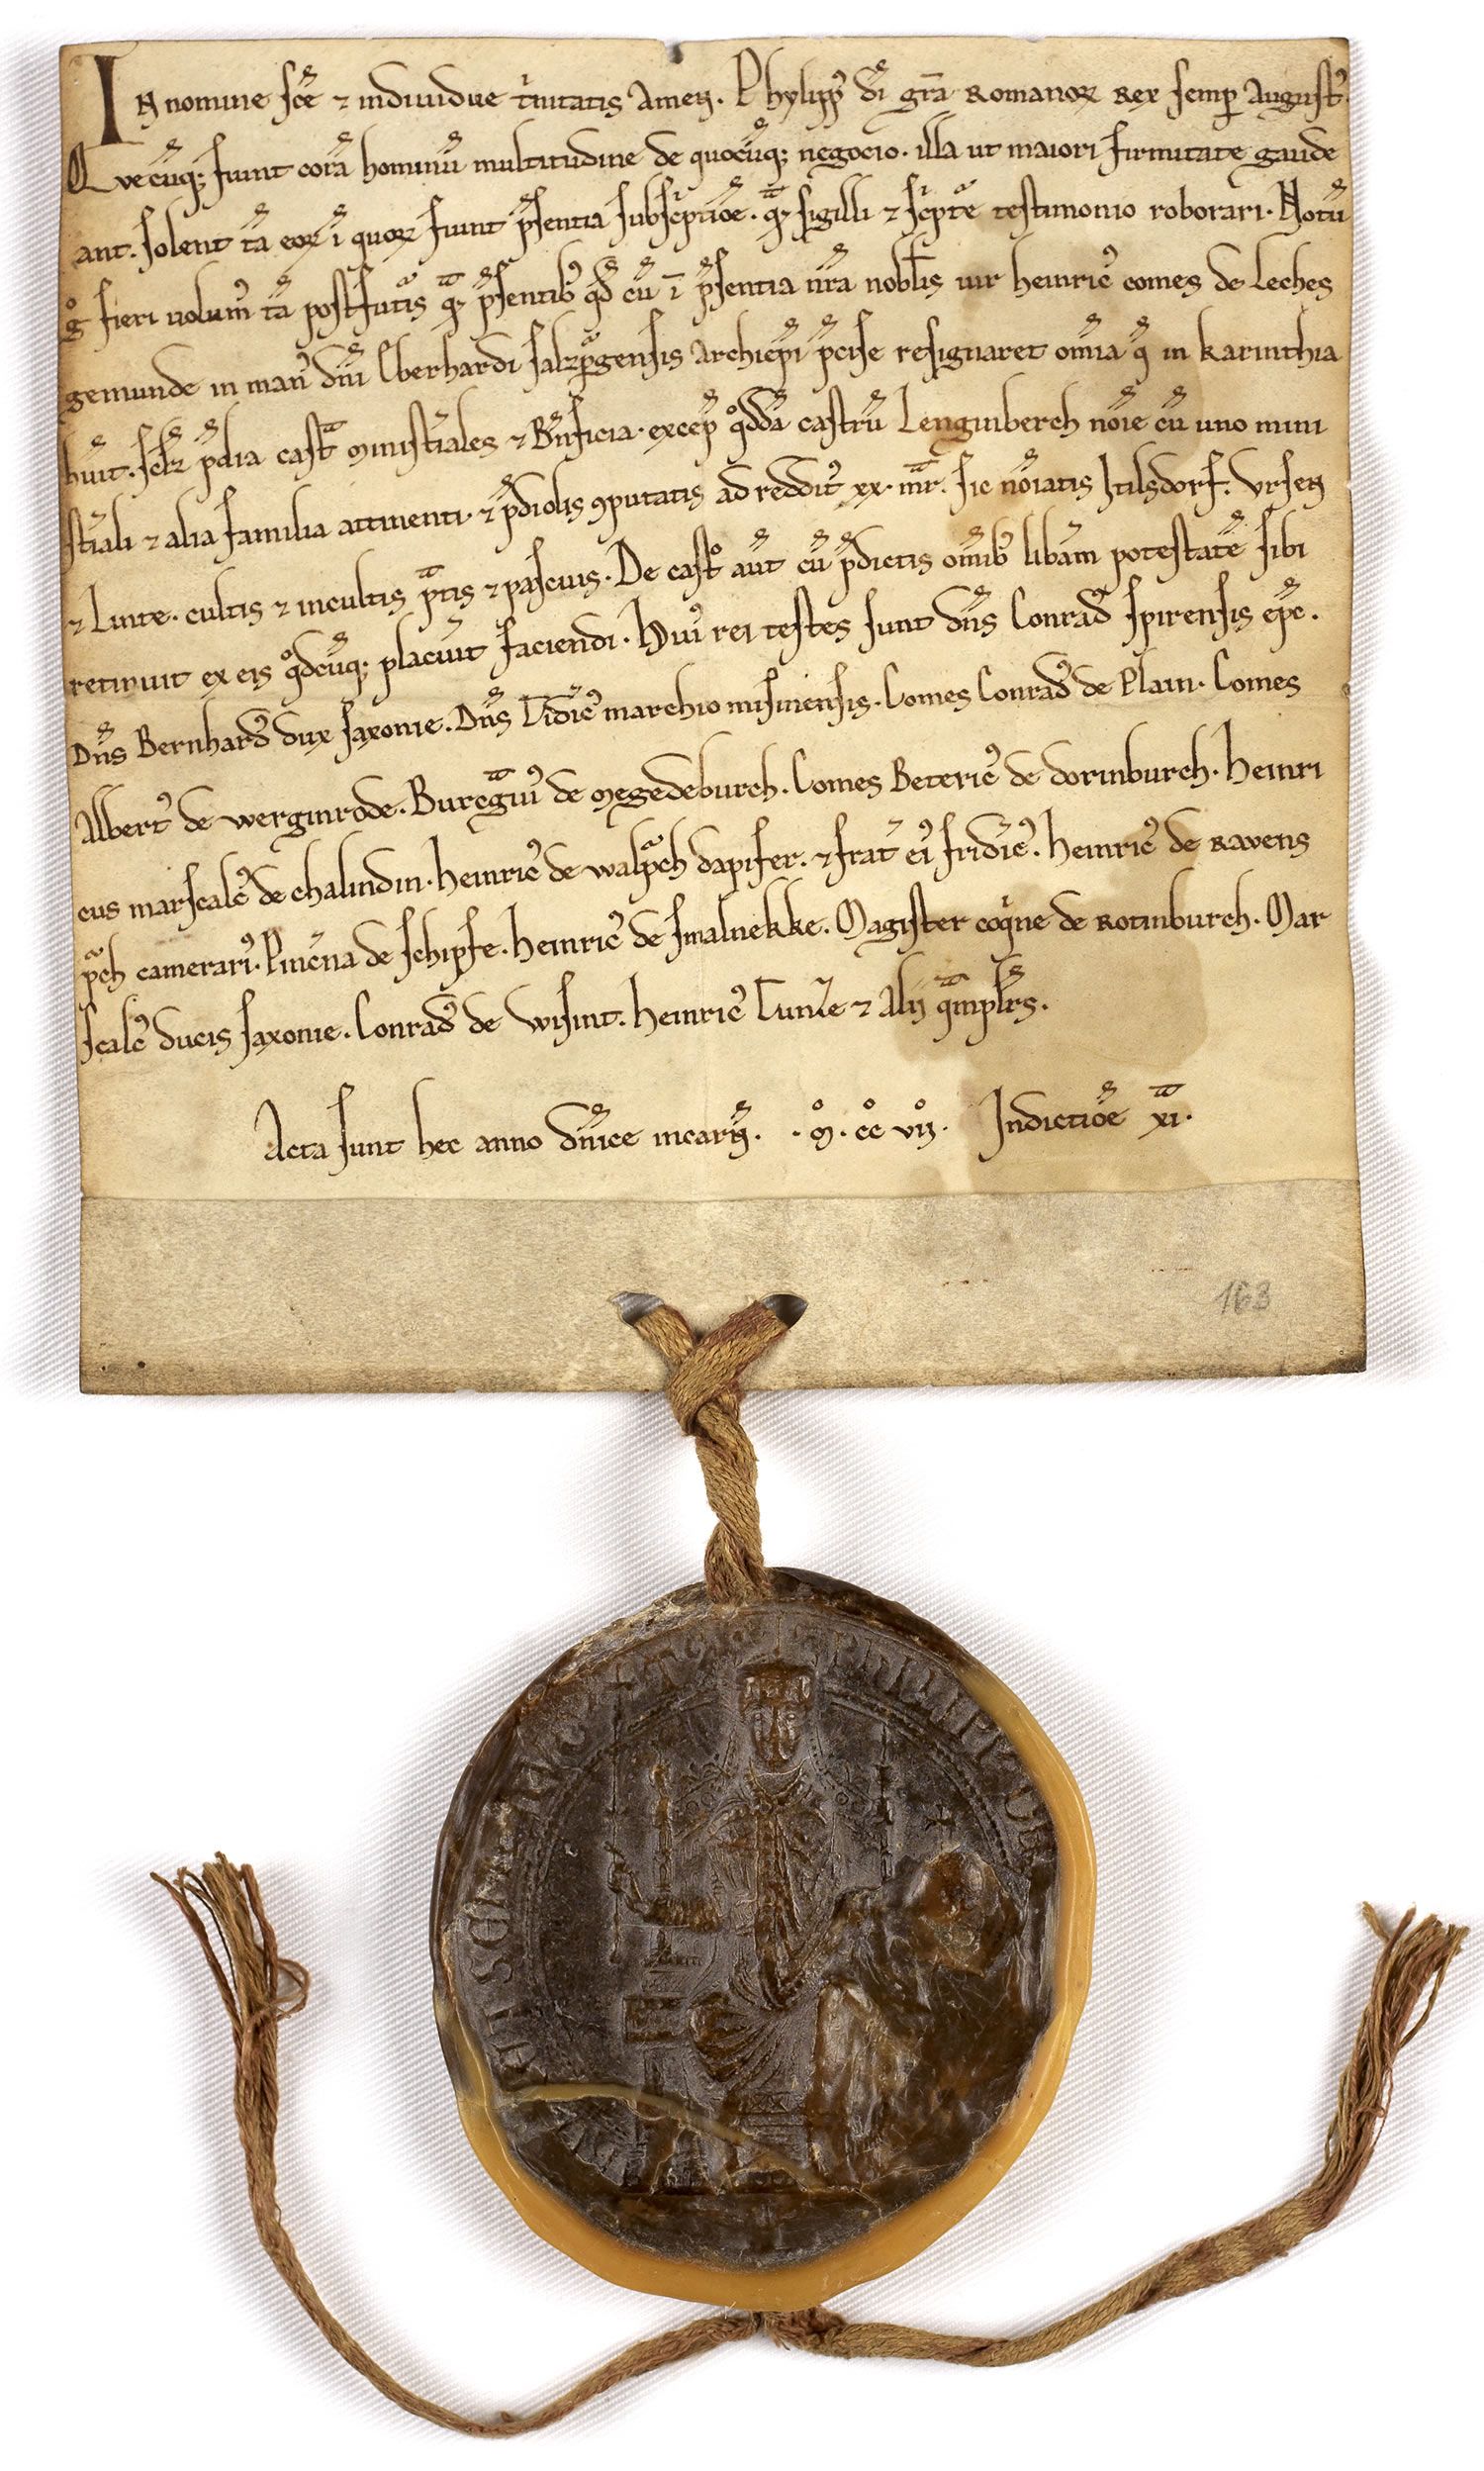 IN nomine sc̄e ⁊ individue t̾nitatis Amen. Phylipp᷒ d̄i gr̄a Romanoꝝ Rex semp̱ August᷒.
Quecūq; fiunt corā hominū multitudine de quocūq; negocio. illa ut maiori firmitate gaude
ant. solent tā eoꝝ ī quoꝝ fiunt p̄sentia subsc̾ptiōe. qᵃ̄ sigilli ⁊ sc̾pte testimonio roborari. Notū
gͦ fieri volum᷒ tā post futᵃis qᵃ̄ p̄sentib᷒ qd̄ cū ī p̄sentia nr̄a nobl̄is vir heinric᷒ comes de Leches
gemunde in man᷒ dn̄i Eberhardi salzpᵃgensis Archiep̄i p̄cise resignaret om̄ia q̄ in karinthia
hūit. scłꝫ p̄dia castᵃ ministiales ⁊ Bn̄ficia. excep̄ qͦddā castrū Lenginberch nōie cū uno mini
stiali ⁊ alia familia attinenti. ⁊ p̄diolis ꝯputatis ad reddit᷒ xx. mr̄. sic nōiatis Itilsdorf. Ursen
⁊ Linte. cultis ⁊ incultis pᵃtis ⁊ pascuis. De castͦ aūt cū p̄dictis om̄ib᷒ lib̾am potestatē sibi
retinuit ex eis qͦdcūq; placuit faciendi. Hui᷒ rei testes sunt dn̄s Conrad᷒ spirensis ep̄c.
Dn̄s Bernhard᷒ dux saxonie. Dn̄s Tidic᷒ marchio misinensis. Comes Conrad᷒ de Plain. Comes
Albert᷒ de werginrode. Burcgᵃvi᷒ de Megedeburch. Comes Beteric᷒ de dorinburch. Heinri
cus marscalc᷒ de chalindin. heinric᷒ de walpᵃch dapifer. ⁊ frat̾ ei᷒ fridic᷒. heinric᷒ de Ravens
pᵃch camerari᷒. Pinc̾na de schipfe. heinric᷒ de smalnekke. Magister coqⁱne de Rotinburch. Mar
scalc᷒ ducis saxonie. Conrad᷒ de Wisint. heinric᷒ Tunłe ⁊ Alij qᵃmpl̄rs.
Acta sunt hec anno dn̄ice incarn̄. .ͦM. cͦc vͦiij. Indictiōe xi.
163
PHILIPP